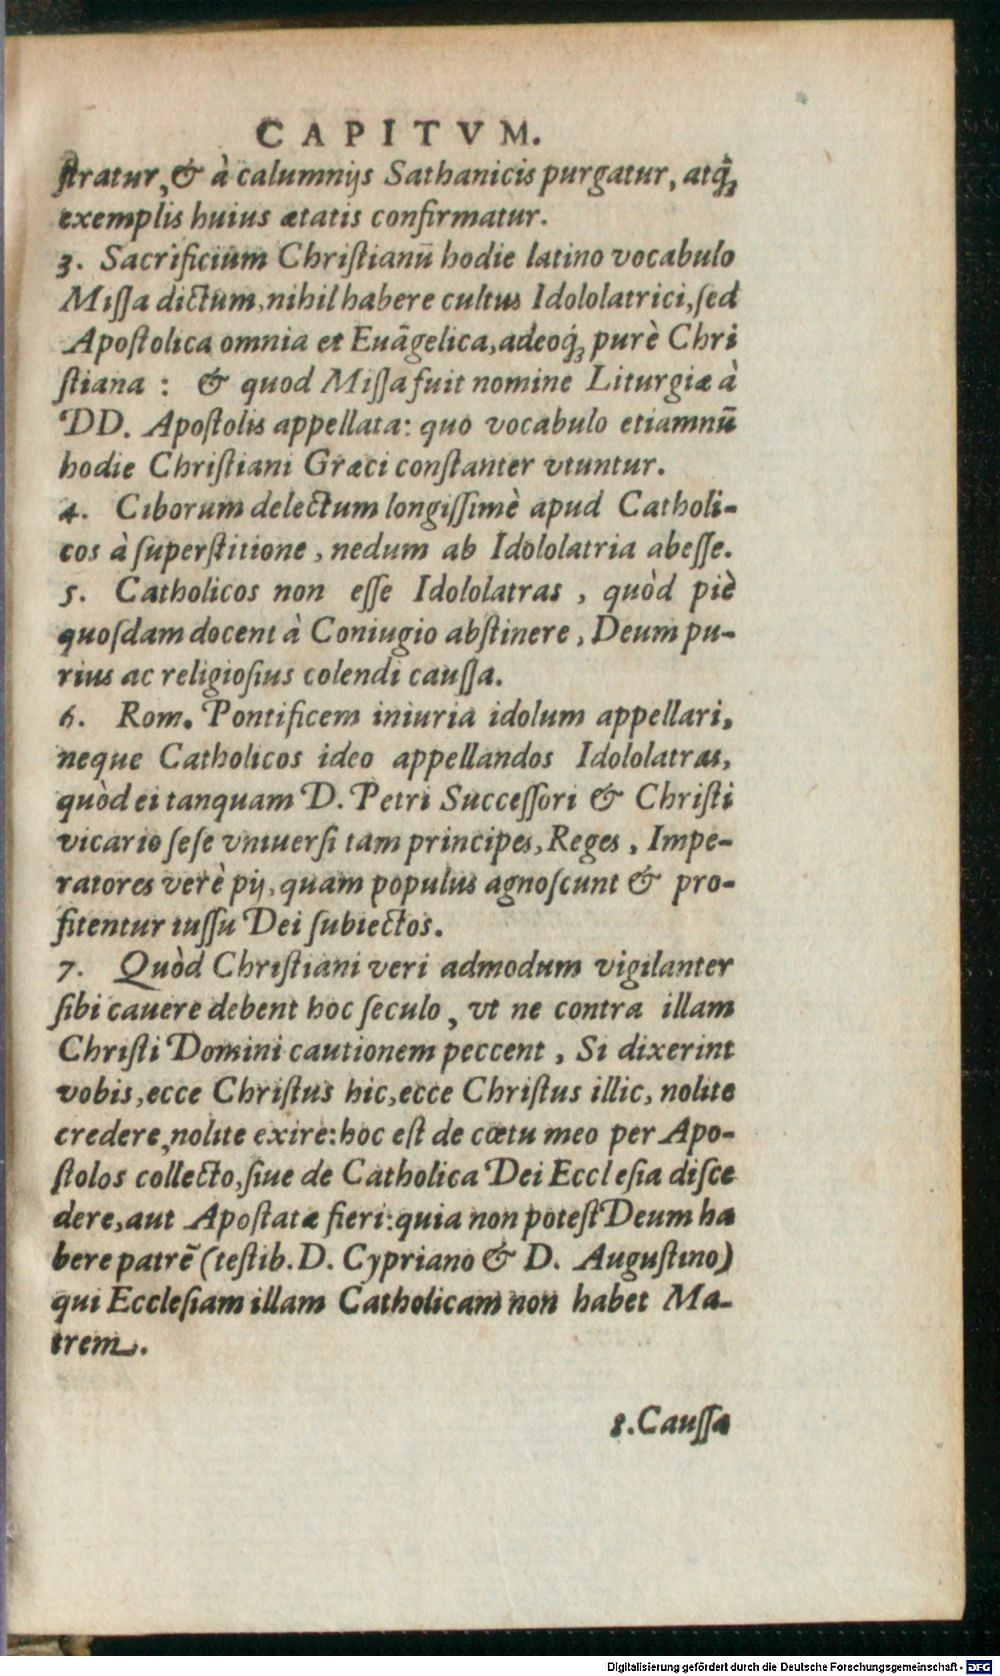 CAPITVM.
ſtratur, & à calumnijs Sathanicis purgatur, atq́;
exemplis huius ætatis confirmatur.
3. Sacrificium Chriſtianū hodie latino vocabulo
Miſſa dictum, nihil habere cultus Idololatrici, ſed
Apoſtolica omnia et Euāgelica, adeoq́; purè Chri
ſtiana : & quod Miſſa fuit nomine Liturgiæ à
DD. Apoſtolis appellata: quo vocabulo etiamnū
hodie Chriſtiani Græci conſtanter vtuntur.
4. Ciborum delectum longiſſimè apud Catholi-
cos à ſuperſtitione, nedum ab Idololatria abeſſe.
5. Catholicos non eſſe Idololatras, quòd piè
quoſdam docent à Coniugio abſtinere, Deum pu-
rius ac religioſius colendi cauſſa.
6. Rom. Pontificem iniuria idolum appellari,
neque Catholicos ideo appellandos Idololatras,
quòd ei tanquam D. Petri Succeſſori & Chriſti
vicario ſeſe vniuerſi tam principes, Reges, Impe-
ratores verè pij, quam populus agnoſcunt & pro-
fitentur iuſſu Dei ſubiectos.
7. Quòd Chriſtiani veri admodum vigilanter
ſibi cauere debent hoc ſeculo, vt ne contra illam
Chriſti Domini cautionem peccent, Si dixerint
vobis, ecce Chriſtus hic, ecce Chriſtus illic, nolite
credere, nolite exire: hoc eſt de cœtu meo per Apo-
ſtolos collecto, ſiue de Catholica Dei Eccleſia diſce
dere, aut Apoſtatæ fieri: quia non poteſt Deum ha
bere patrē (teſtib. D. Cypriano & D. Auguſtino)
qui Eccleſiam illam Catholicam non habet Ma-
trem.
8. Cauſſa
Digitalisierung gefördert durch die Deutsche Forschungsgemeinschaft - DFG